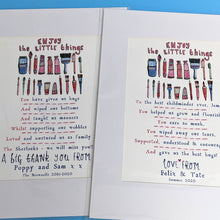 ENJOY
the LiTTLE things
You have given us hugs
And taught us manners
Whilst supporting our wobbles
Loved and nurtured us as family
The Sherlocks - we will miss you!
A big thank you from
Poppy and Sam x x
2021-2023
ENJOY
the LiTTLE things
To the best childminder ever, Sam
You fed and helped us grow
You ears to
You wiped away our tears
Supported, understood & encouraged
And gave us the best hugs!
LOVE FROM
Felix & Tate
Summer 2023